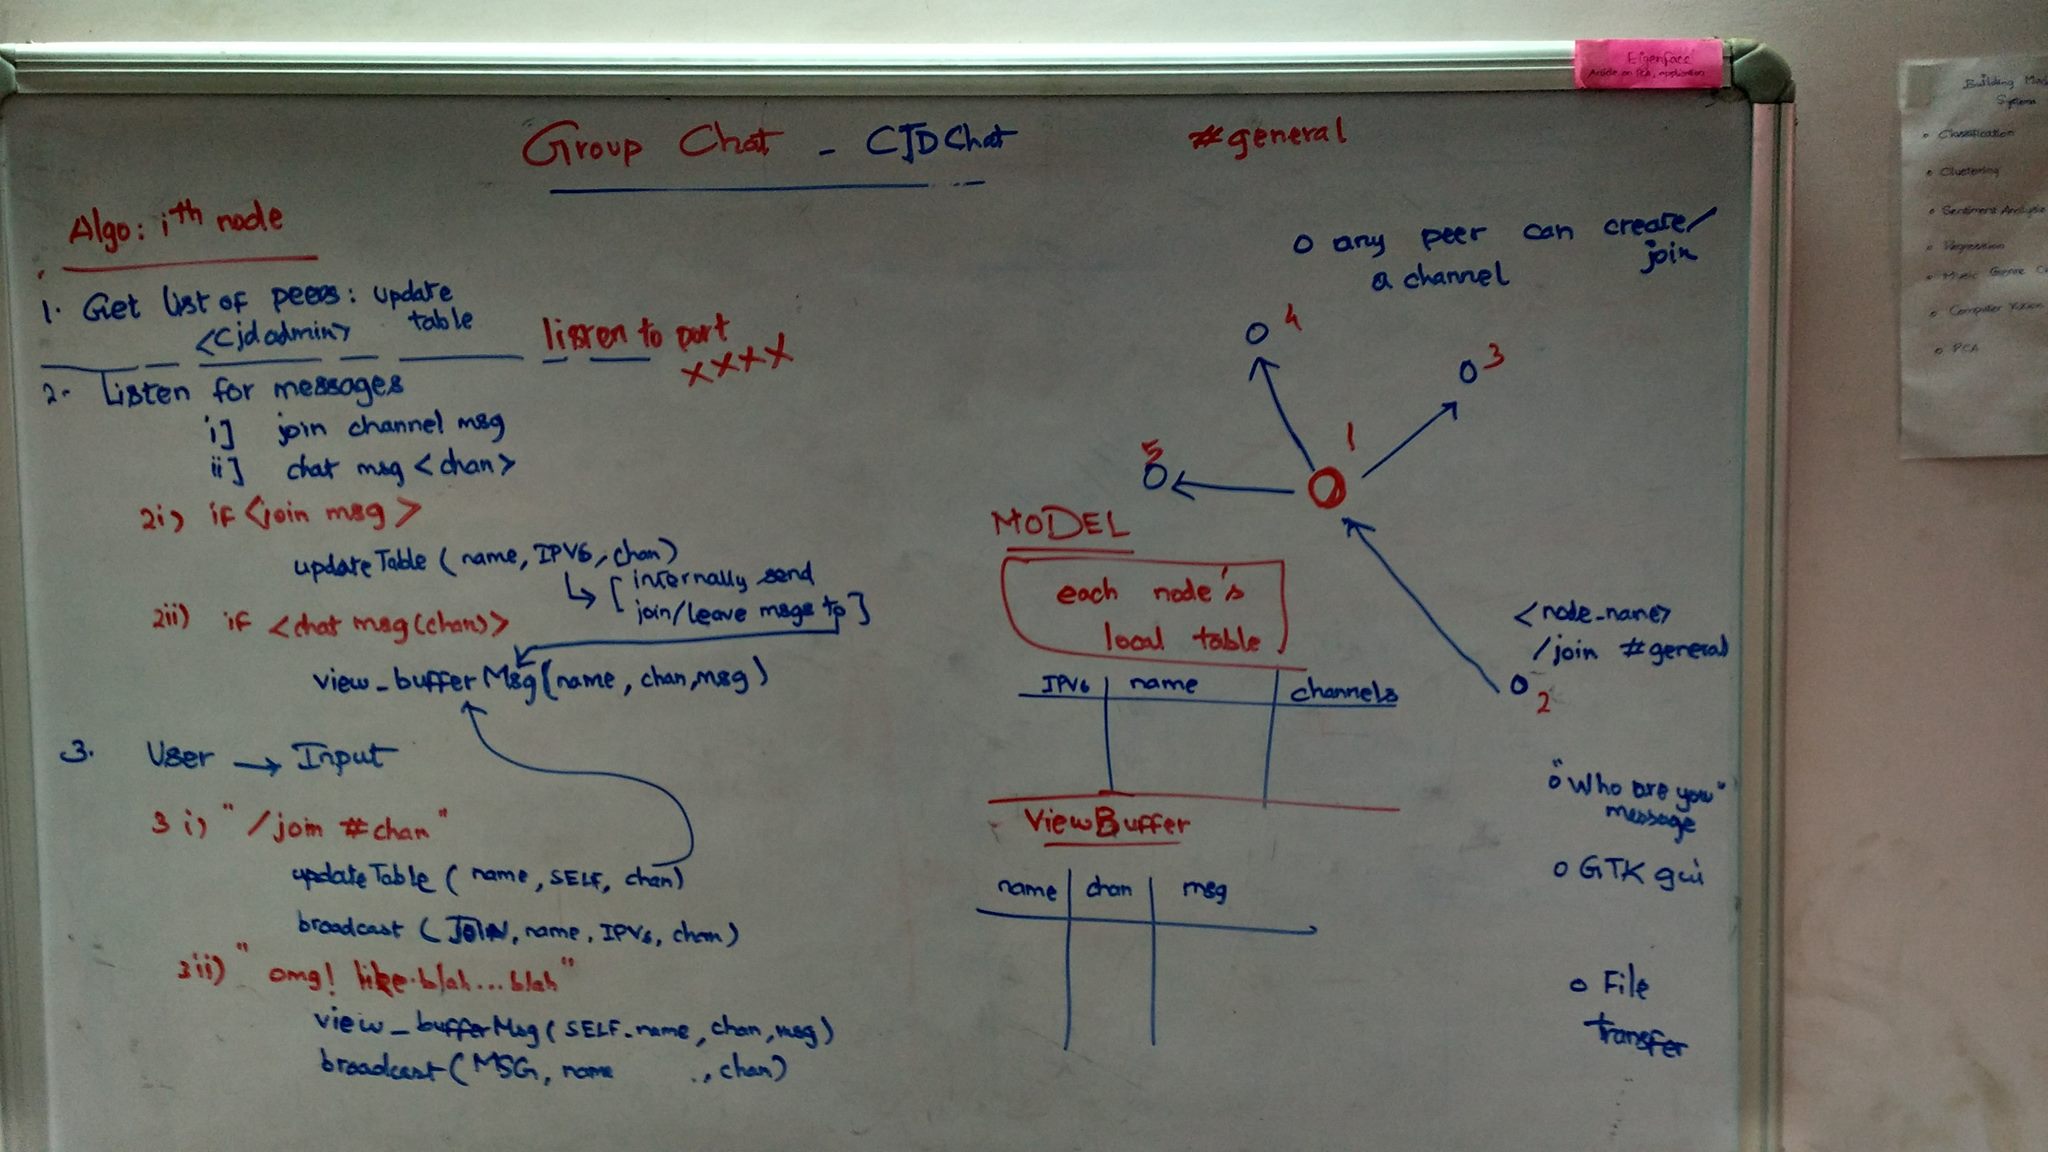 Eigenface
Article on PCA, application
Group Chat - CJDChat
#general
Algo: ith node
1. Get list of peers: update
<cjdadmin> table
listen to port
xxxx
2. Listen for messages
i] join channel msg
ii] chat msg <chan>
2i) if <join msg>
updateTable (name, IPV6, chan)
[internally send
join/leave msgs to]
2ii) if <chat msg(chan)>
view_bufferMsg(name, chan, msg)
3. User → Input
3i) "/join #chan"
updateTable (name, SELF, chan)
broadcast (JOIN, name, IPV6, chan)
3ii) "omg! like blah...blah"
view_bufferMsg(SELF.name, chan, msg)
broadcast(MSG, name , chan)
o any peer can create/
join
a channel
4
3
5
1
2
<node_name>
/join #general
MODEL
each node's
local table
IPV6 name channels
ViewBuffer
name chan msg
o "Who are you"
message
o GTK gui
o File
transfer
Building
Systems
Classification
Clustering
Sentiment Analysis
Regression
Music Genre
Computer Vision
PCA